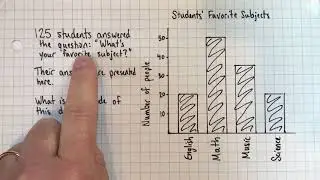 125 students answered
the question: "What's
your favorite subject?"
Their presented
here.
What is of
this
Students' Favorite Subjects
Number of people
50
40
30
20
10
English
Math
Music
Science